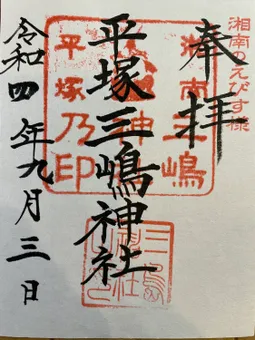 湘南のえびす様
奉拝
平塚三嶋神社
令和四年九月三日
湘南三嶋
平塚乃印